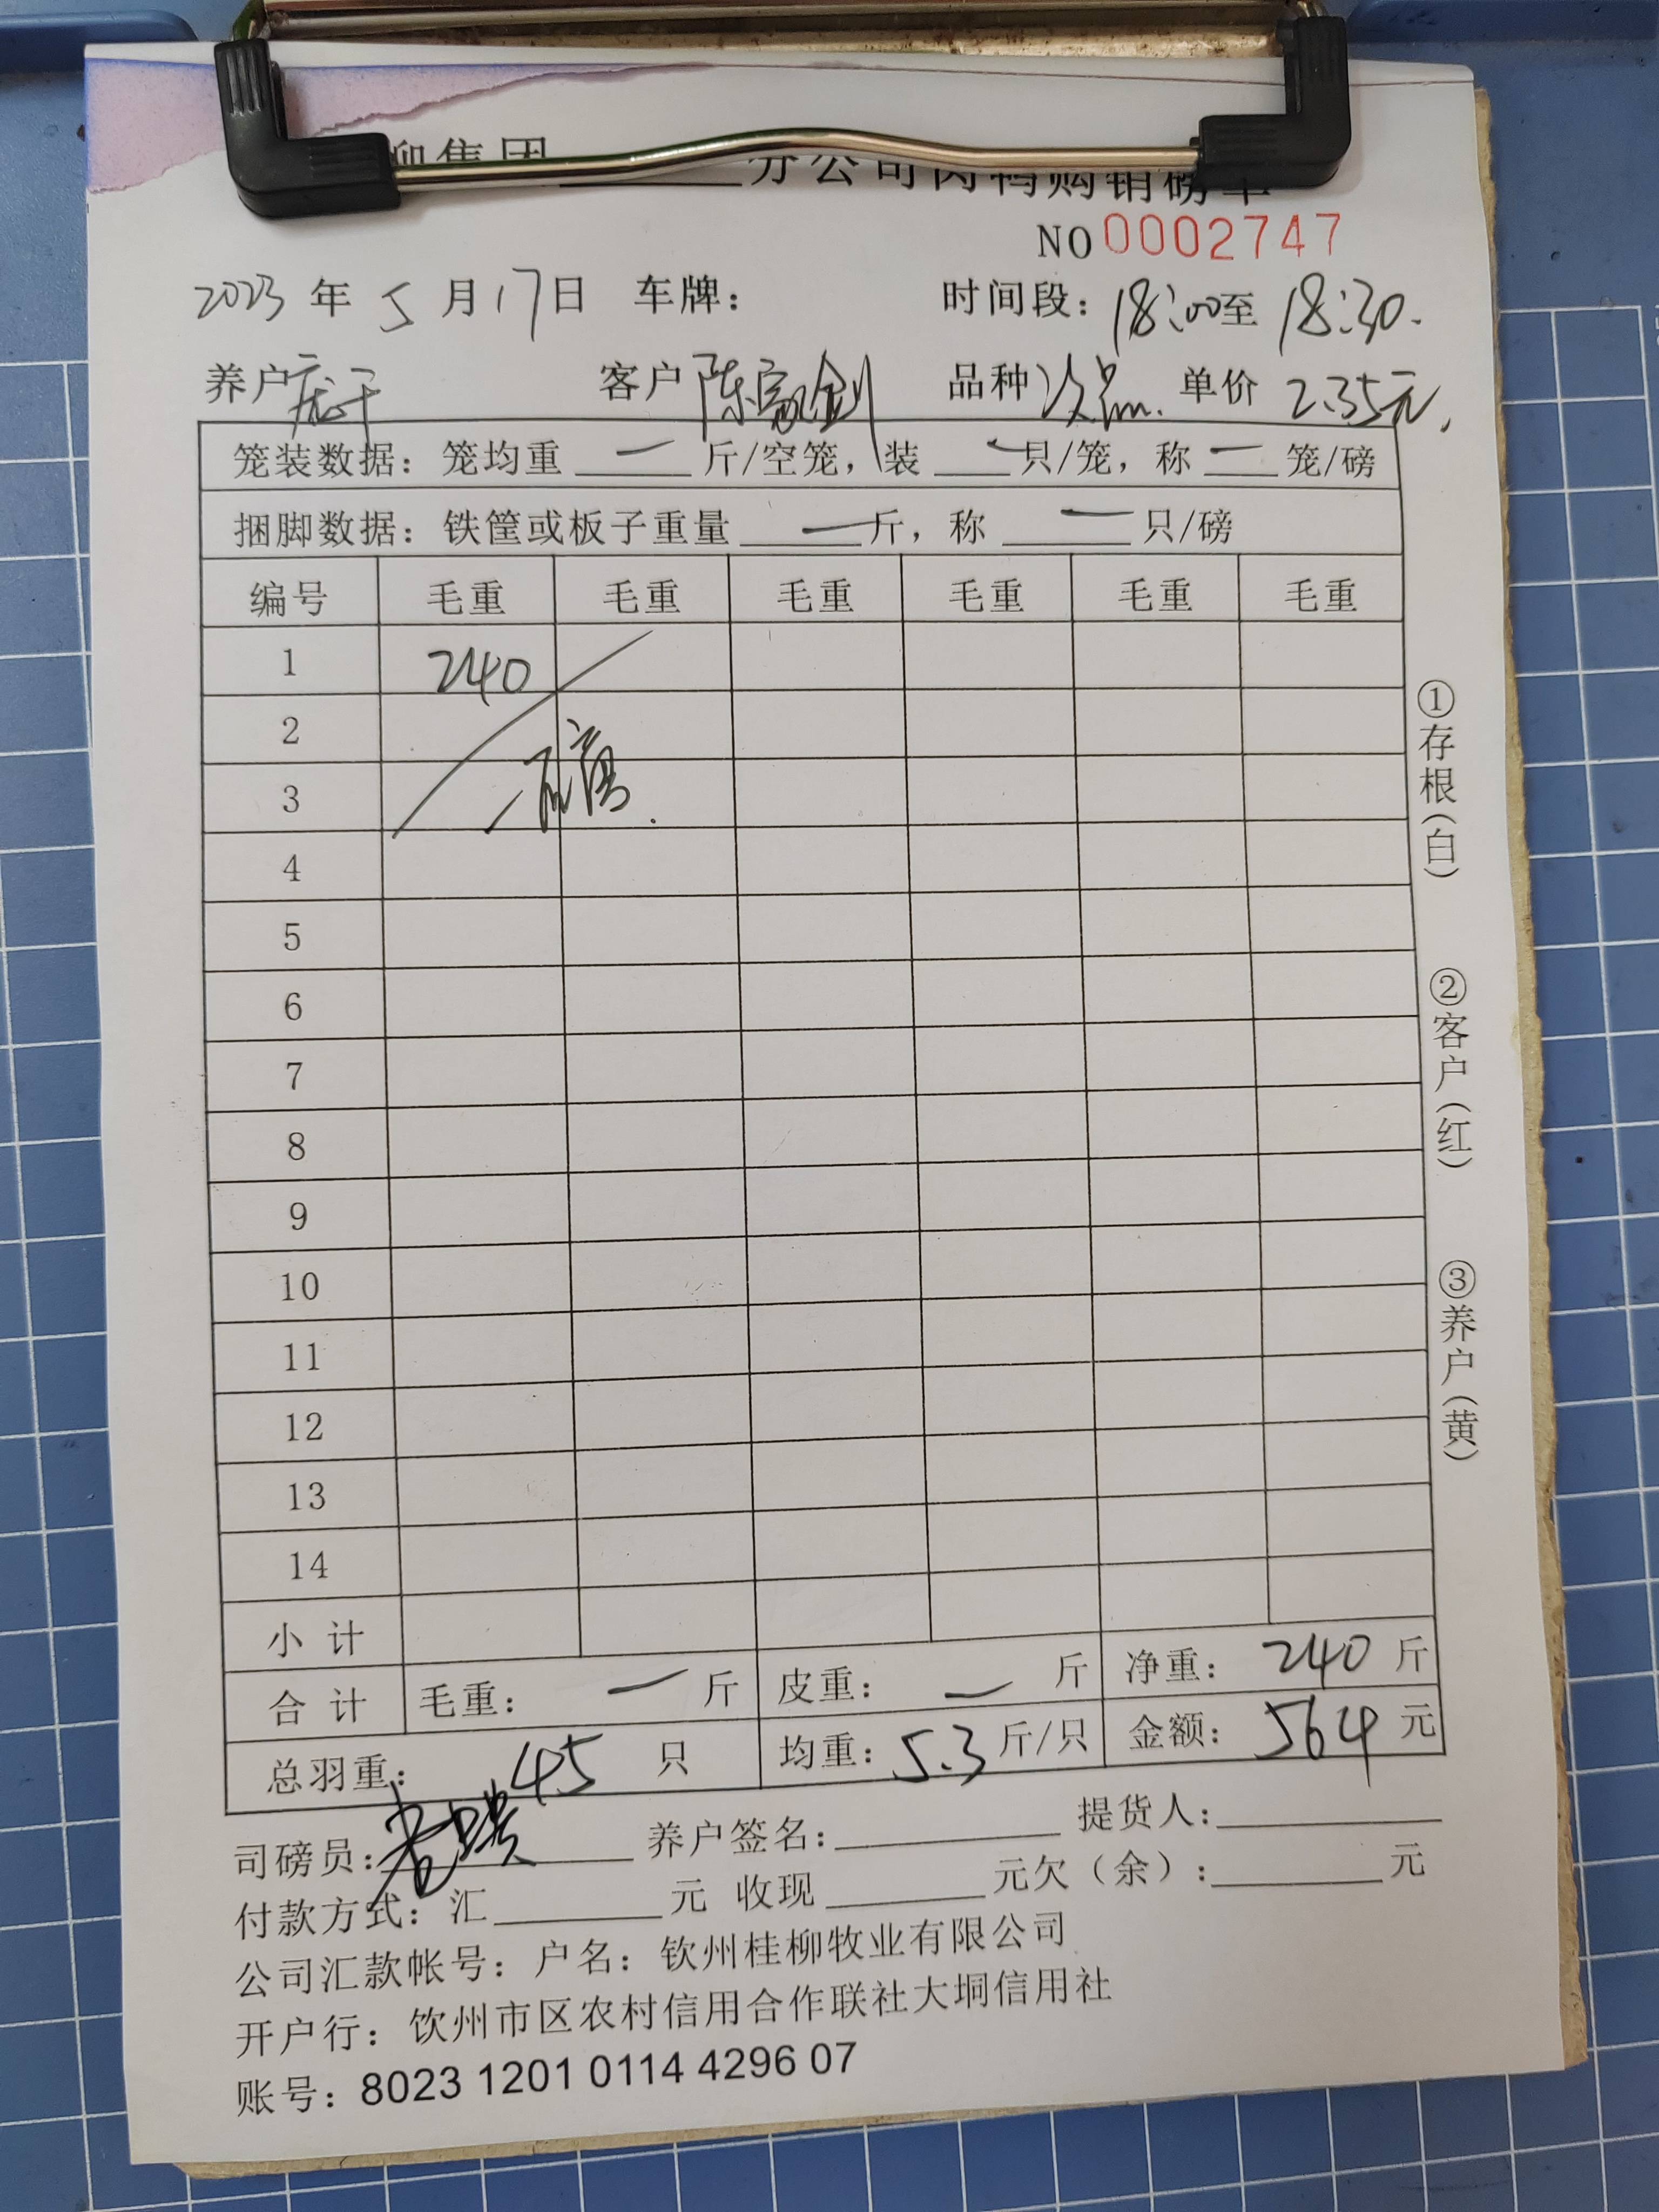 柳集团______分公司肉鸭购销磅单
NO 0002747
2023 年 5 月 17 日 车牌： 时间段：18:00至 18:30.
养户 客户 陈家剑 品种 次品. 单价 2.35元.
笼装数据：笼均重 — 斤/空笼，装 — 只/笼，称 — 笼/磅
捆脚数据：铁筐或板子重量 — 斤，称 — 只/磅
编号 毛重 毛重 毛重 毛重 毛重 毛重
1 240
2
3
4
5
6
7
8
9
10
11
12
13
14
小 计
合 计 毛重： — 斤 皮重： — 斤 净重： 240 斤
总羽重： 45 只 均重：5.3 斤/只 金额： 564 元
司磅员： 养户签名：______ 提货人：______
付款方式：汇______元 收现______元欠（余）：______元
公司汇款帐号：户名：钦州桂柳牧业有限公司
开户行：钦州市区农村信用合作联社大垌信用社
账号：8023 1201 0114 4296 07
①存根（白）
②客户（红）
③养户（黄）